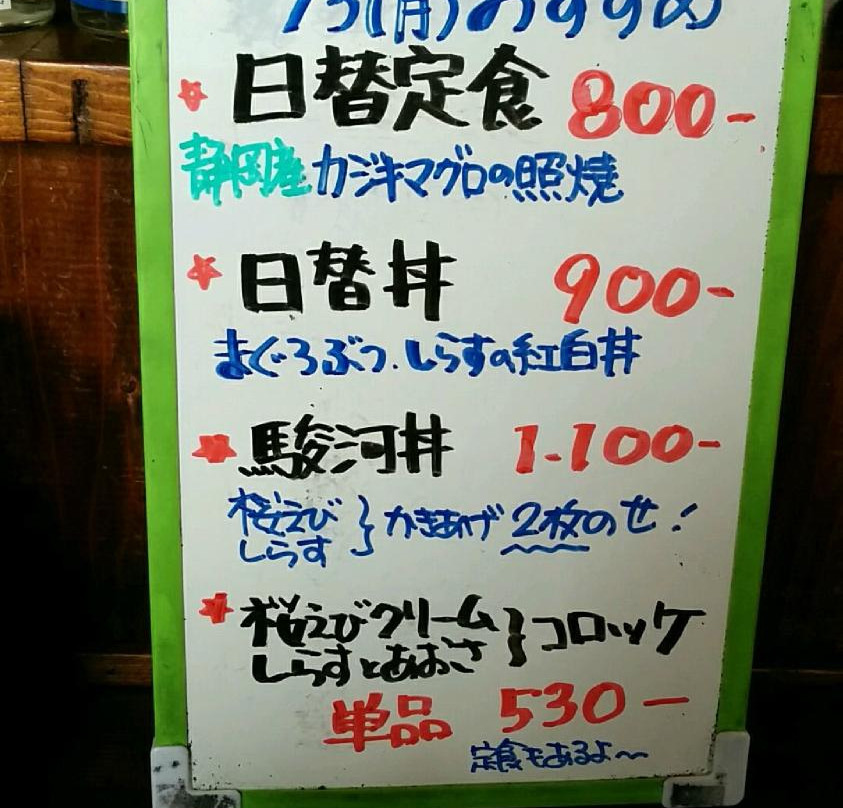 (月)おすすめ
日替定食 800-
静岡産カジキマグロの照焼
日替丼 900-
まぐろぶつ、しらすの紅白丼
駿河丼 1.100-
桜えび
しらす } かきあげ2枚のせ!
桜えびクリーム
しらすとあおさ } コロッケ
単品 530-
定食もあるよ〜